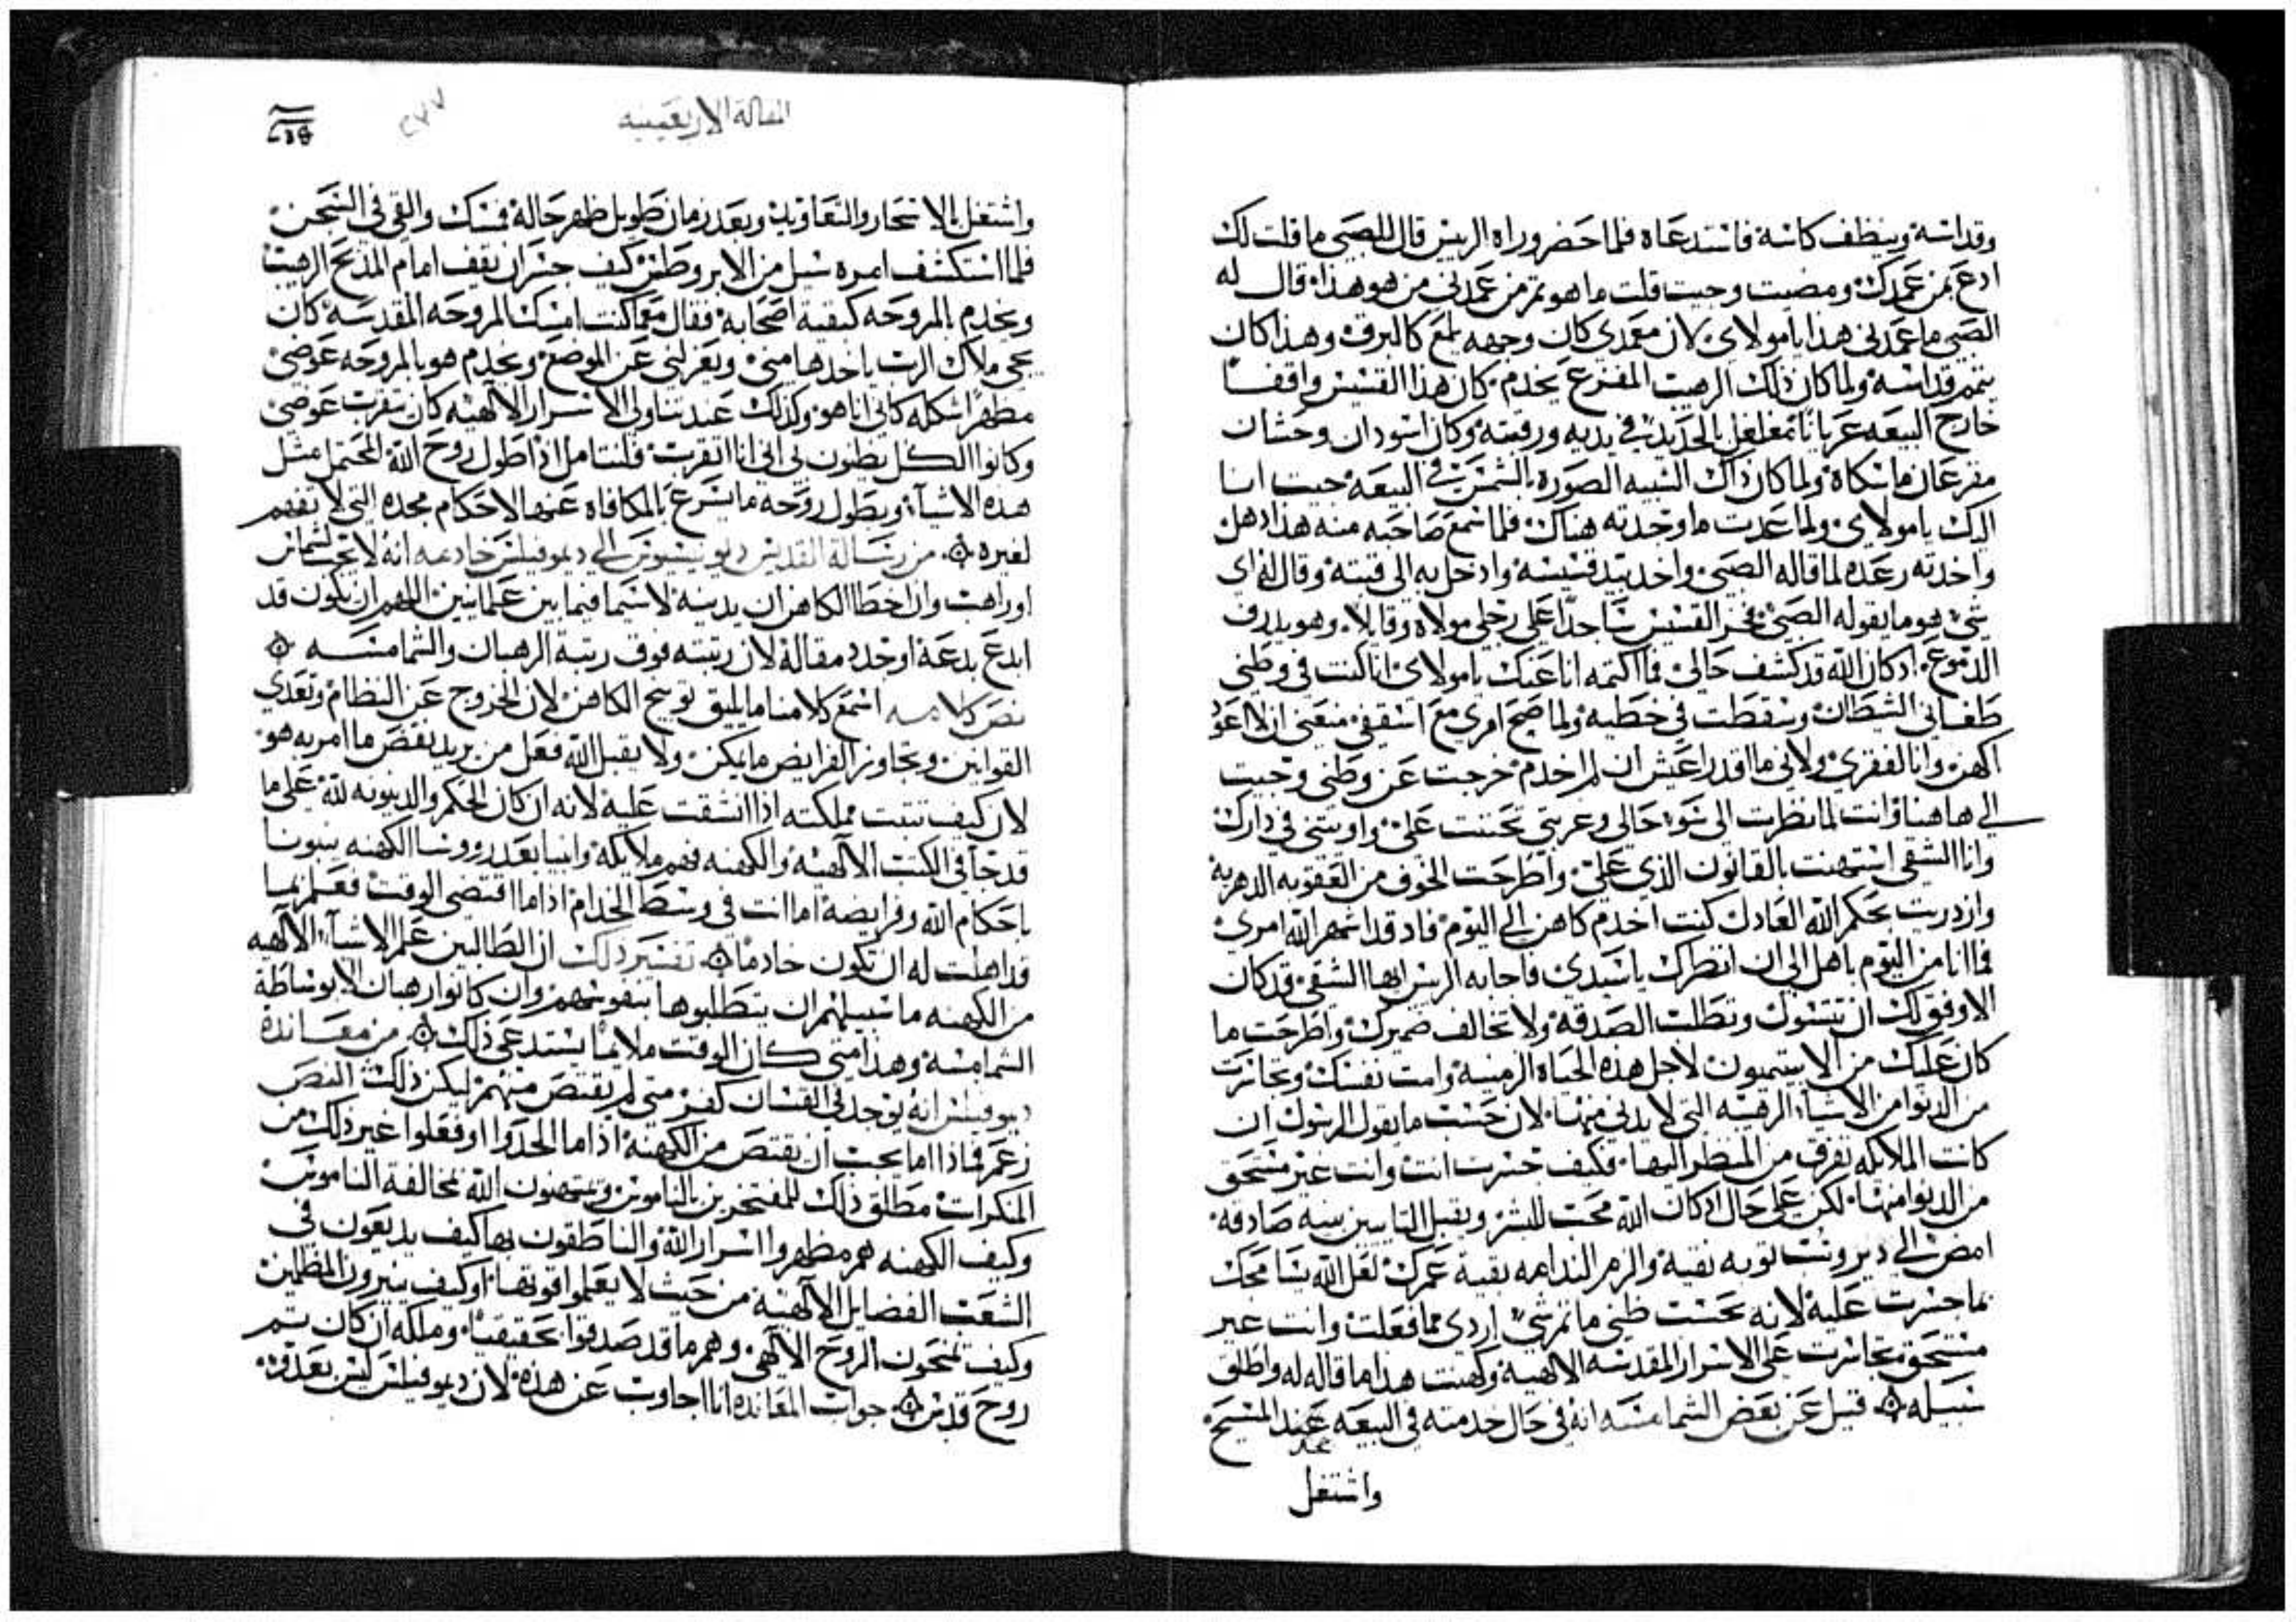 وقداسة وينظف كاسة فاستدعاه فلما حضر وراه الريس قال للصبي ما قلت لك
ادع بمن عمدك ومضيت وجيت قلت ما هو ثم من عمدني من هو هذا قال له
الصبي ما عمدني هذا يا مولاي لان معمدي كان وجهه يلمع كالبرق وهذا كان
يتمم قداسه ولما كان ذلك الرهيب المفزع يخدم كان هذا القسيس واقفا
خارج البيعه عريانا مغلغل بالحديد في يديه ورقبته وكان اسودان وحشان
مفزعان ماسكاه ولما كان ذاك الشبيه الصوره بالشمس في البيعه جيت انا
اليك يا مولاي ولما عدت ما وجدته هناك فلما سمع صاحبه منه هذا دهل
واخذته رعده لما قاله الصبي واخد بيد قسيسه وادخل به الى قبته وقال له اي
شي هو ما يقوله الصبي فخر القسيس ساجدا على رجلي مولاه وقايلا وهو يدرف
الدموع ادكان الله قد كشف حالي فما اكتمه انا عنك يا مولاي انا كنت في وطني
طغاني الشطان وسقطت في خطيه ولما صح امري مع اسقفي منعني ان لا اعود
اكهن وانا لفقري ولاني ما اقدر اعيش ان لم اخدم خرجت عن وطني وجيت
الى هاهنا وانت لما نظرت الى سوء حالي وعريتي تحننت علي واويتني في دارك
وانا الشقي استهنت بالقانون الذي علي واطرحت الخوف من العقوبه الدهرية
وازدريت بحكم الله العادل كنت اخدم كاهن الى اليوم فاد قد اشهر الله امري
فما انا من اليوم باهل الى ان انظرك يا سيدي فاجابه الريس ايها الشقي قد كان
الاوفق لك ان تتسول وتطلب الصدقة ولا تخالف ضميرك واطرحت ما
كان عليك من الابيتيميون لاجل هذه الحياه الزمنية وامت نفسك وتجاسرت
من الدنوا من الاشياء الرهبه التي لا يدنى منها لان حسب ما يقول الرسول ان
كانت الملايكه تفرق من المنظر اليها فكيف جسرت انت وانت غير مستحق
من الدنوا منها لكن على حال ادكان الله محب للبشر ويقبل التايبين بنيه صادقة
امض الى دير وتب توبه نقية والزم الندامه بقية عمرك لعل الله يسامحك
بما جسرت عليه لانه بحسب ظني ما ثم شي اردى مما فعلت وانت غير
مستحق تجاسرت على الاسرار المقدسه الالهية وكهنت هدا ما قاله له واطلق
سبيله ۞ قيل عن بعض الشمامسه انه في حال خدمته في البيعه عبد المسيح
واشتغل
المقالة الاربعينيه
٢٧٧
واشتغل بالاسحار والتعاويد وبعد زمان طويل ظهر حاله فمسك والقي في السجن
فلما استكشف امره سيل من الابروطس كيف جسر ان يقف امام المدبح الرهيب
ويخدم بالمروحه كبقية اصحابة فقال مهما كنت امسك المروحه المقدسه كان
يجي ملاك الرب ياخدها مني ويعزلني عن الموضع ويخدم هو بالمروحه عوضي
مظهرا شكله كاني انا هو وكذلك عند تناولي الاسرار الالهيه كان يتقرب عوضي
وكانوا الكل يظنون بي اني انا اتقرب فلنتامل اذا طول روح الله المحتمل مثل
هده الاشيا وبطول روحه ما يسرع بالمكافاه عنها لاحكام مجده التي لا تفهم
لغيره ۞ من رسالة القديس ديونيسيوس الى ديموفيلس خادمه انه لا يجب لشماس
او راهب وان اخطا الكاهن ان يدينه لاسيما فيما بين علمانيين اللهم ان يكون قد
ابدع بدعة او جدد مقالة لان رتبته فوق رتبة الرهبان والشمامسه ۞
نص كلامه اسمع كلامنا ما يليق توبيخ الكاهن لان الخروج عن النظام وتعدي
القوانين وتجاوز الفرايض ما يمكن ولا يقبل الله فعل من يريد نقض ما امر به هو
لان كيف تتبت مملكته اذا انشقت عليه لانه ان كان الحكم والدينونه لله على ما
قد جا في الكتب الالهيه والكهنه فهم ملايكة وانبيا بعد روسا الكهنه ينبونا
باحكام الله وفرايضه اما انت في وسط الخدام اذا ما اقتضى الوقت فعلم بما
قد اهلت له ان تكون خادما ۞ تفسير ذلك ان الطالبين علم الاشيا الالهيه
من الكهنه ما سبيلهم ان يتطلبوها بنفوسهم وان كانوا رهبان الا بوساطة
الشمامسه وهذا متى كان الوقت ملايما يستدعي ذلك ۞ من معانده
ديموفيلس انه يوجد في القسان كفر متى لم يقتص منهم ليكن ذلك النص
زعم فماذا اما يجب ان يقتص من الكهنه اذا ما الحدوا او فعلوا غير ذلك من
المنكرات مطلق ذلك للمفتخرين بالناموس ويستهنون الله بمخالفة الناموس
وكيف الكهنه هم مظهروا اسرار الله والناطقون بها كيف يديعون في
الشعب الفضايل الالهيه من حيث لا يعلموا قوتها او كيف ينيرون المظلمين
وكيف يمنحون الروح الالهي وهم ما قد صدقوا بحقيقيا وملكه ان كان يتم
روح قدس ۞ جواب المعانده انا اجاوب عن هذه لان ديموفيلس ليس بعدوه